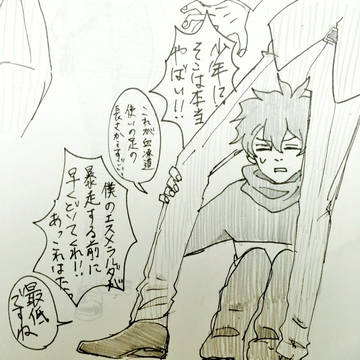 少年に
そこは本当
やばい!!
これが血凍道
使いの足の
長さかえすごい
僕のエスメラルダが
暴走する前に
早くどいてくれ!!
あっこれはた。
最低
ですね